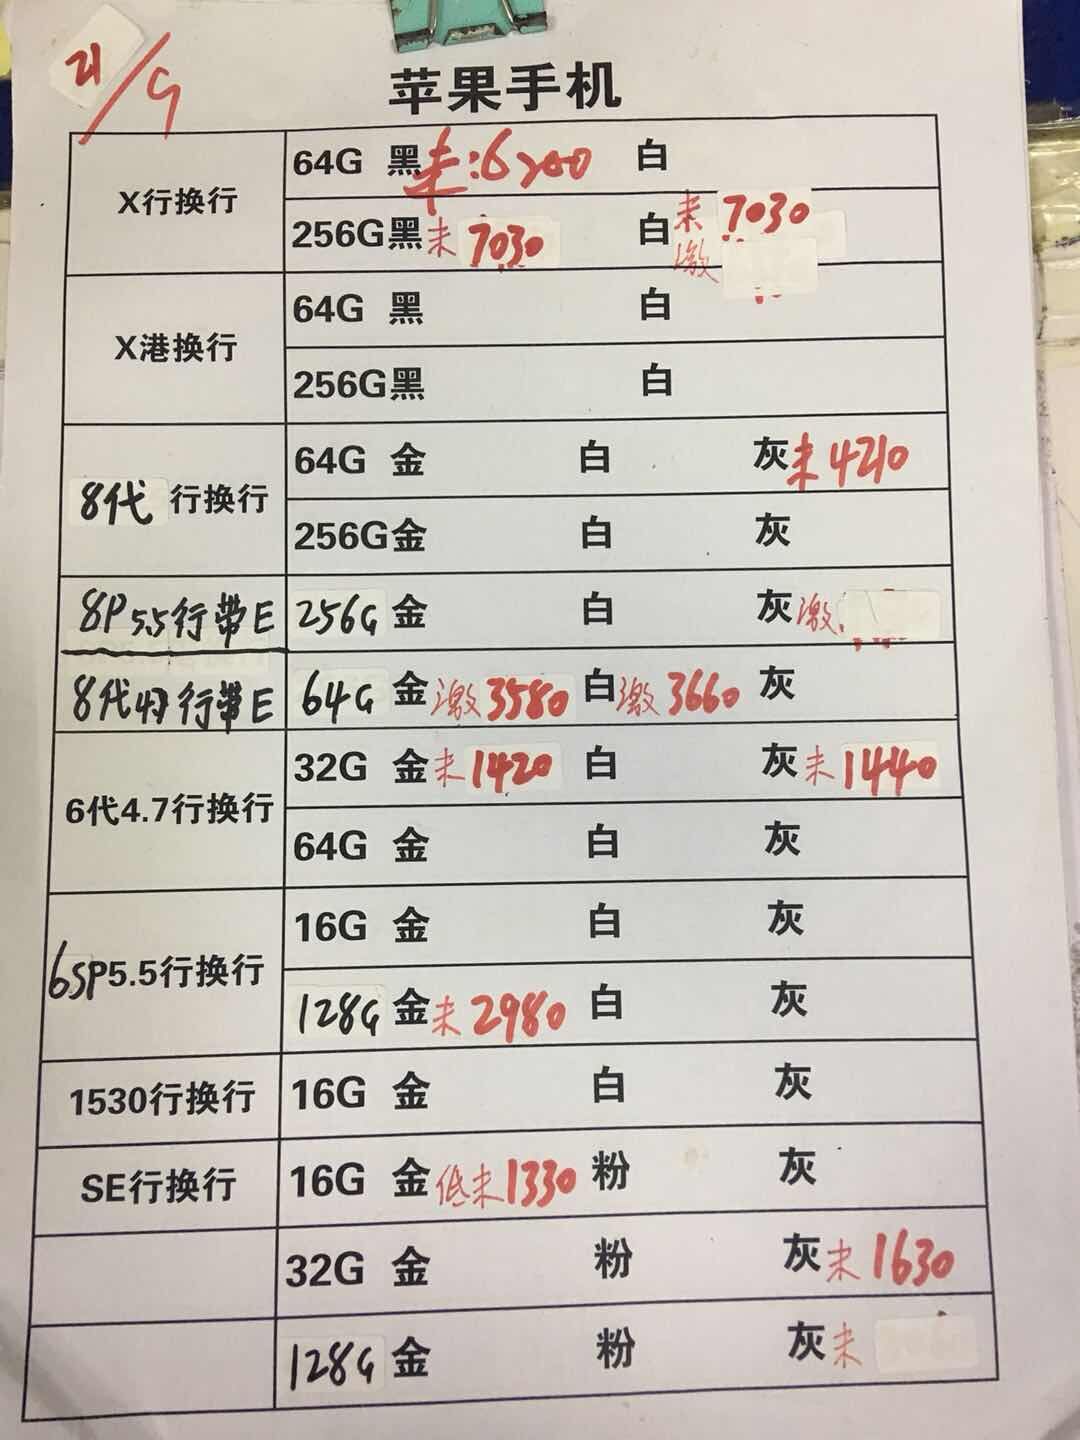 21/9
苹果手机
X行换行
64G 黑 未:6200 白
256G黑 未 7030 白 未 7030
激
X港换行
64G 黑 白
256G黑 白
8代 行换行
64G 金 白 灰 未 4210
256G金 白 灰
8P 5.5行带E 256G 金 白 灰 激
8代4.7行带E 64G 金 激 3580 白 激 3660 灰
6代4.7行换行
32G 金 未 1420 白 灰 未 1440
64G 金 白 灰
6SP5.5行换行
16G 金 白 灰
128G 金 未 2980 白 灰
1530行换行 16G 金 白 灰
SE行换行 16G 金 低未 1330 粉 灰
32G 金 粉 灰 未 1630
128G 金 粉 灰 未